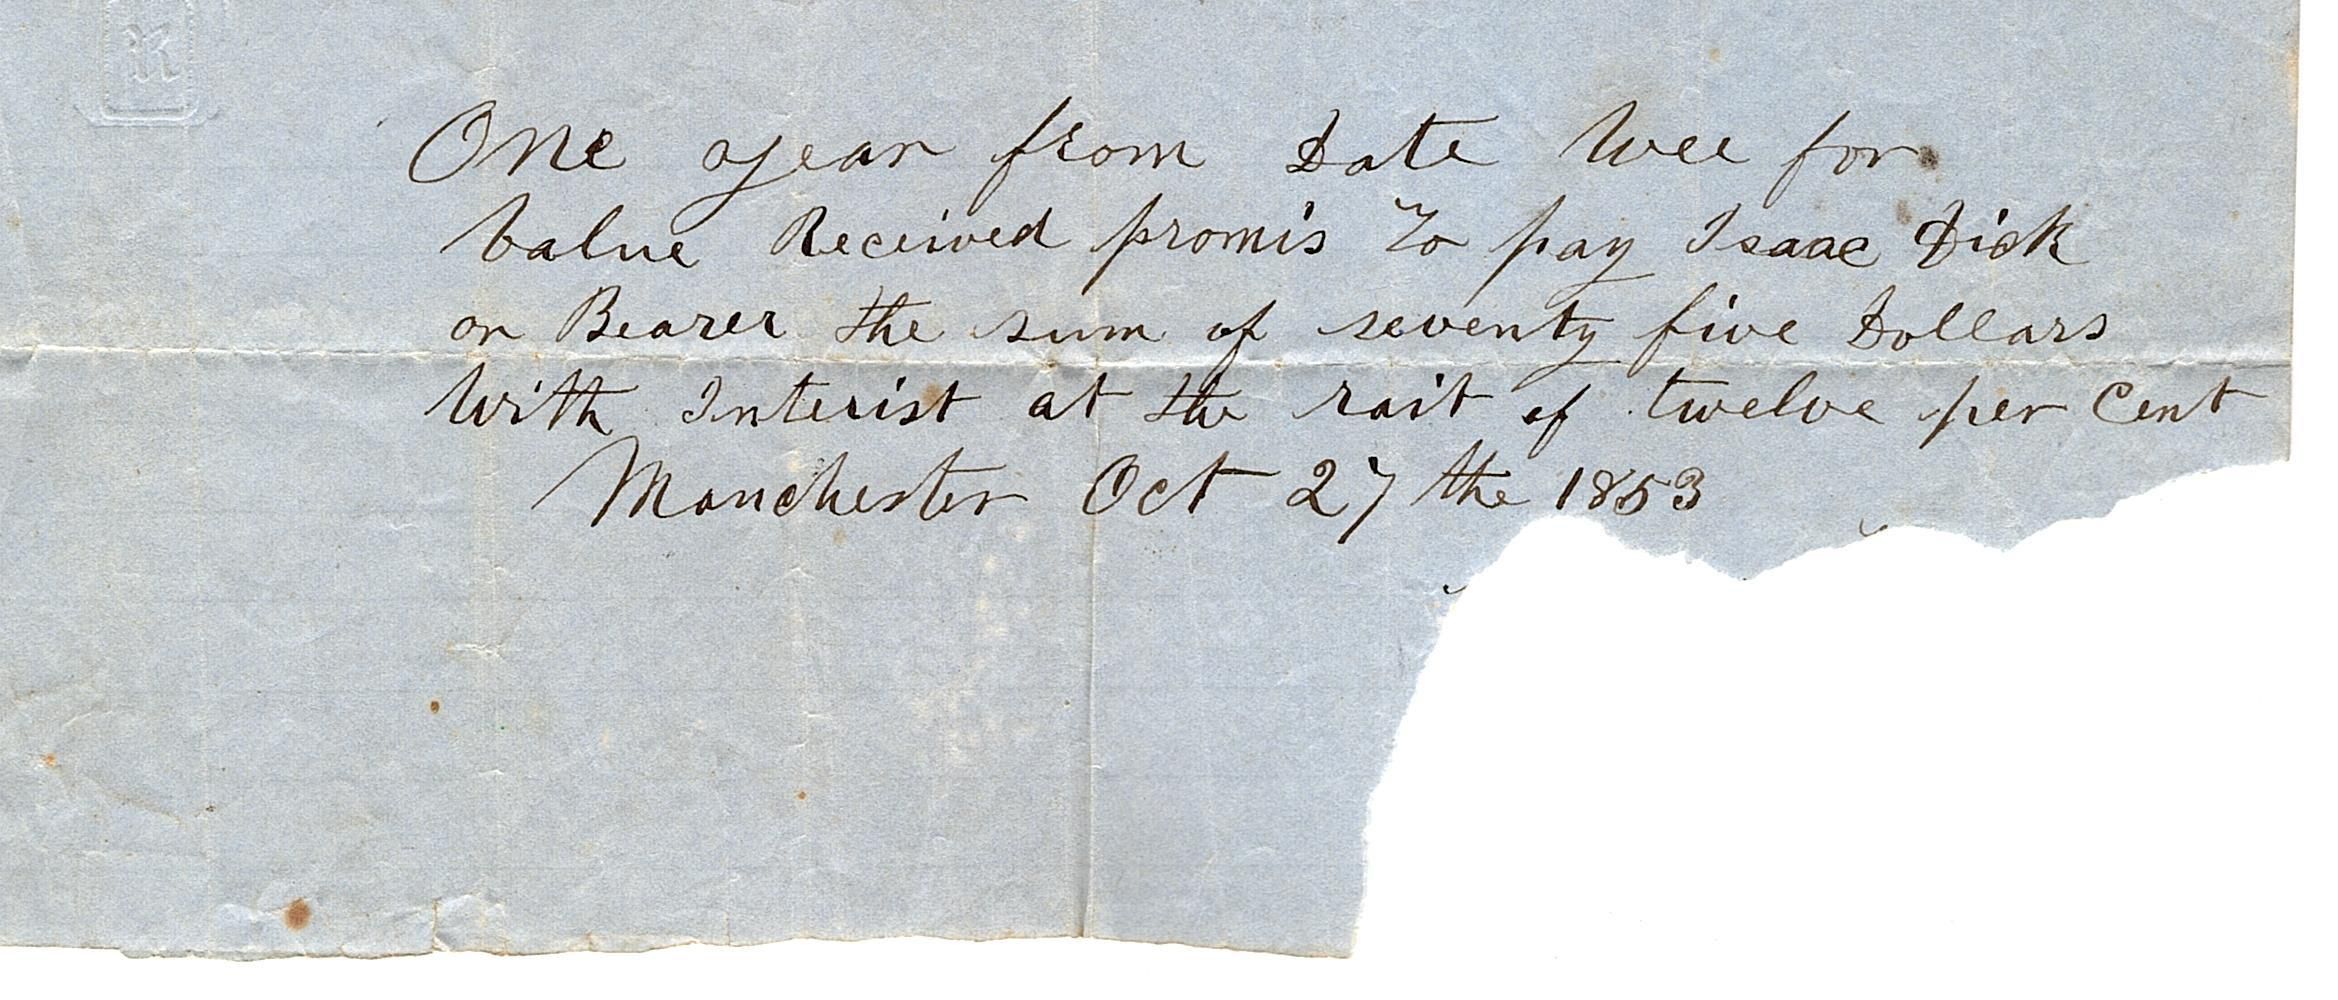 One year from Date Wee for
Value Received promis To pay Isaac Dick
or Bearer the sum of seventy five Dollars
With Interist at the rait of twelve per Cent
Manchester Oct 27 the 1853